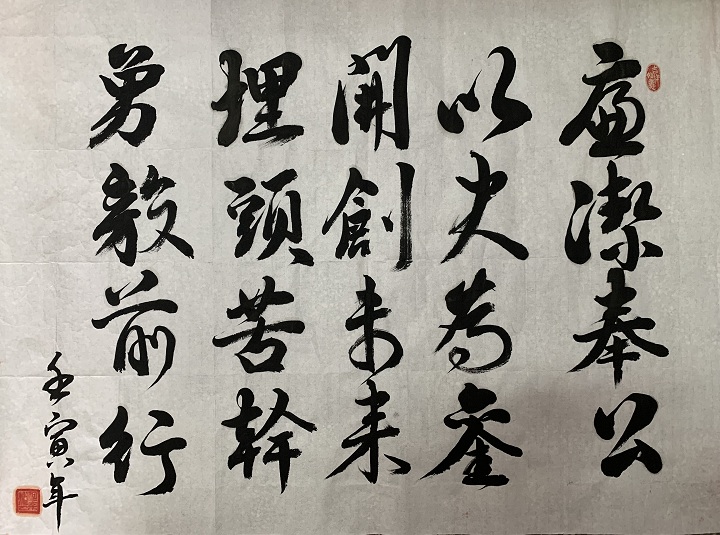 廉潔奉公
以史為鉴
開創未来
埋頭苦幹
勇毅前行
壬寅年